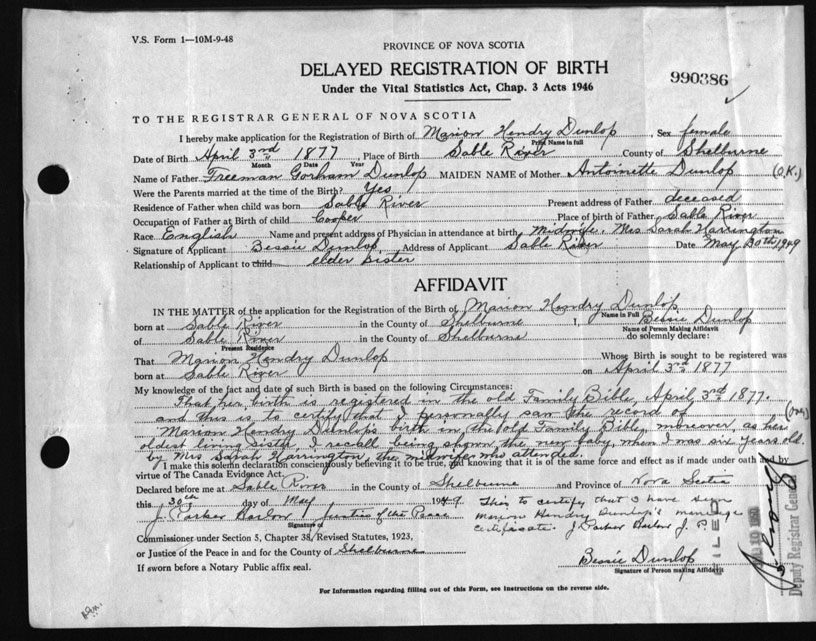 V.S. Form 1—10M-9-48
PROVINCE OF NOVA SCOTIA
DELAYED REGISTRATION OF BIRTH
990386
Under the Vital Statistics Act, Chap. 3 Acts 1946
TO THE REGISTRAR GENERAL OF NOVA SCOTIA
I hereby make application for the Registration of Birth of Marion Hendry Dunlop, Sex female
Print Name in full
Date of Birth April 3rd 1877, Place of Birth Sable River County of Shelburne
Month Date Year
Name of Father Freeman Gorham Dunlop MAIDEN NAME of Mother Antoinette Dunlop (O.K.)
Were the Parents married at the time of the Birth? Yes
Residence of Father when child was born Sable River Present address of Father deceased
Occupation of Father at Birth of child Cooper Place of birth of Father Sable River
Race English Name and present address of Physician in attendance at birth Midwife, Mrs Sarah Harrington
Signature of Applicant Bessie Dunlop, Address of Applicant Sable River Date May 30th 1949
Relationship of Applicant to child elder sister
AFFIDAVIT
IN THE MATTER of the application for the Registration of the Birth of Marion Hendry Dunlop
Name in Full
born at Sable River in the County of Shelburne I, Bessie Dunlop
Name of Person Making Affidavit
of Sable River in the County of Shelburne do solemnly declare:
Present Residence
That Marion Hendry Dunlop Whose Birth is sought to be registered was
born at Sable River on April 3rd 1877
My knowledge of the fact and date of such Birth is based on the following Circumstances:
That her birth is registered in the old Family Bible, April 3rd 1877.
and this is to certify that I personally saw the record of
Marion Hendry Dunlop's birth in the old Family Bible, moreover, as her
oldest living sister, I recall being shown the new baby, when I was six years old.
by Mrs Sarah Harrington, the midwife who attended.
I make this solemn declaration conscientiously believing it to be true, and knowing that it is of the same force and effect as if made under oath and by
virtue of The Canada Evidence Act.
Declared before me at Sable River in the County of Shelburne and Province of Nova Scotia
this 30th day of May 1949
This to certify that I have seen
J. Parker Barlow Justice of the Peace
Marion Hendry Dunlop's marriage
Signature of
certificate. J. Parker Barlow J. P.
Commissioner under Section 5, Chapter 38, Revised Statutes, 1923,
or Justice of the Peace in and for the County of Shelburne
Bessie Dunlop
If sworn before a Notary Public affix seal.
Signature of Person making Affidavit
FILED
Deputy Registrar General
For Information regarding filling out of this Form, see Instructions on the reverse side.